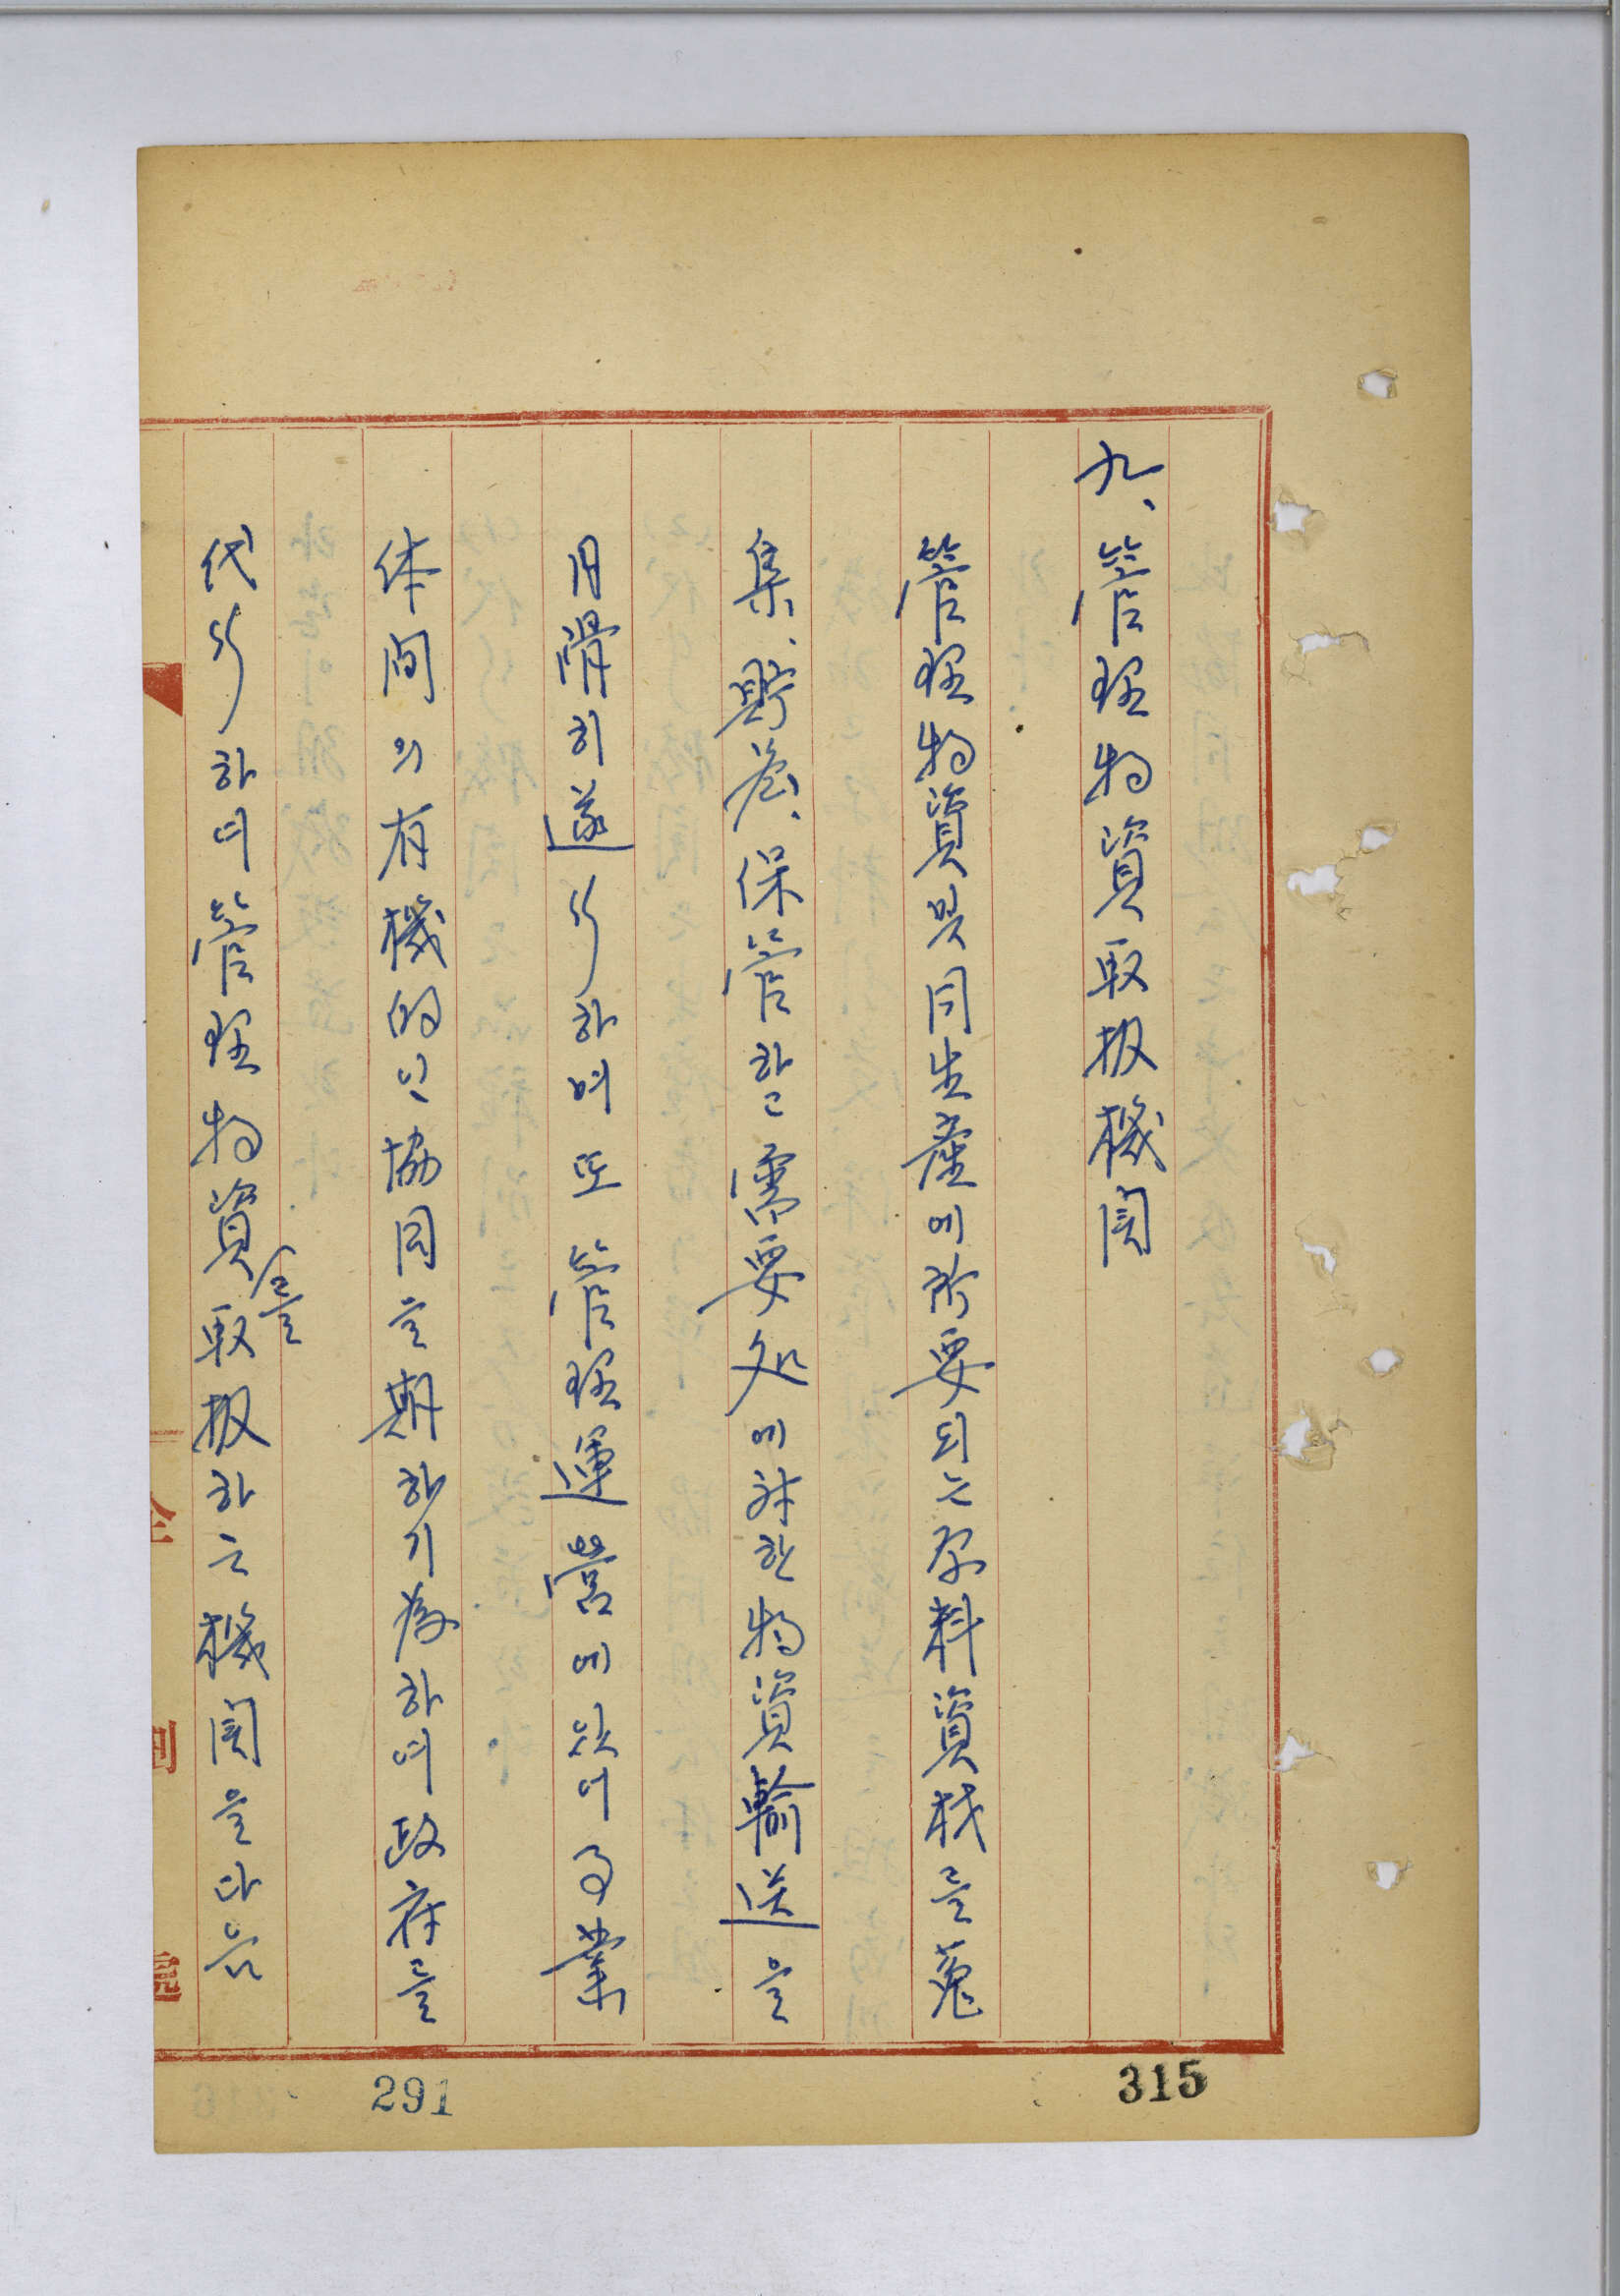 九、管理物資取扱機関
管理物資및同生産에所要되는原料資材를蒐
集、保管하고需要処에対한物資輸送을
円滑히遂行하며또管理運営에있어業
体間의有機的인協同을期하기為하여政府를
代行하여管理物資를取扱하는機関을다음
315
291